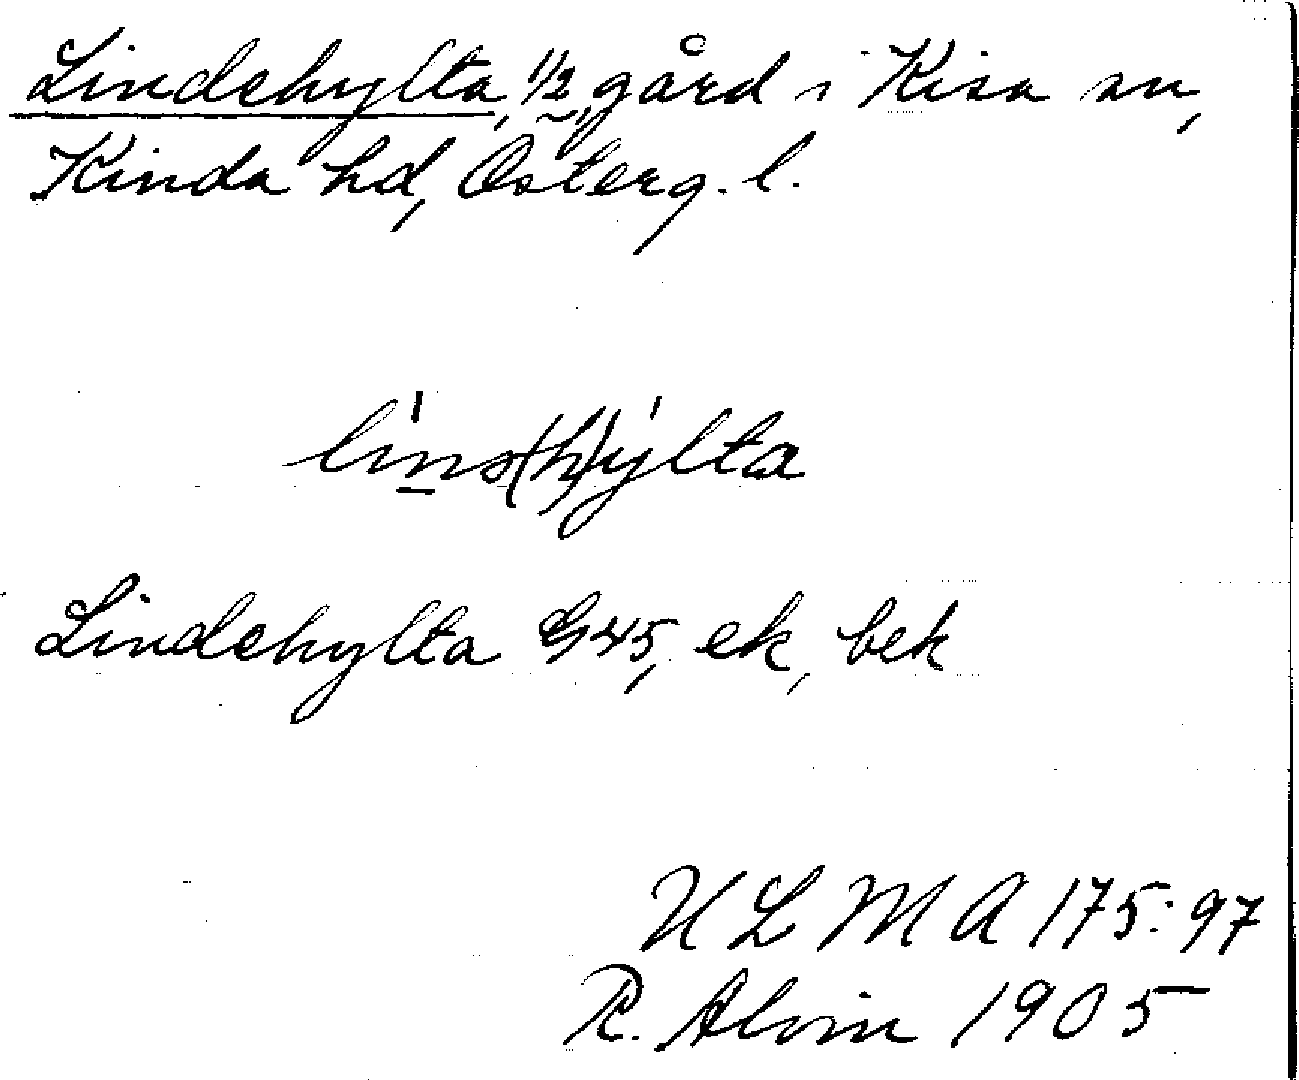 Lindehylta, 1/2, gård i Kisa sn,
Kinda hd, Österg. l.
lins(h)ylta
Lindehylta G45, ek, bek
ULMA 175:97
R. Alvin 1905